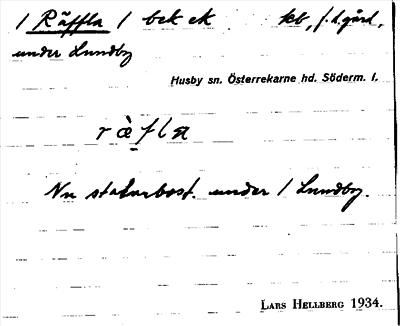 / Räffla / bek ek kb, f.d. gård,
under Lundby
Husby sn. Österrekarne hd. Söderm. l.
Nu statarbost. under / Lundby.
LARS HELLBERG 1934.